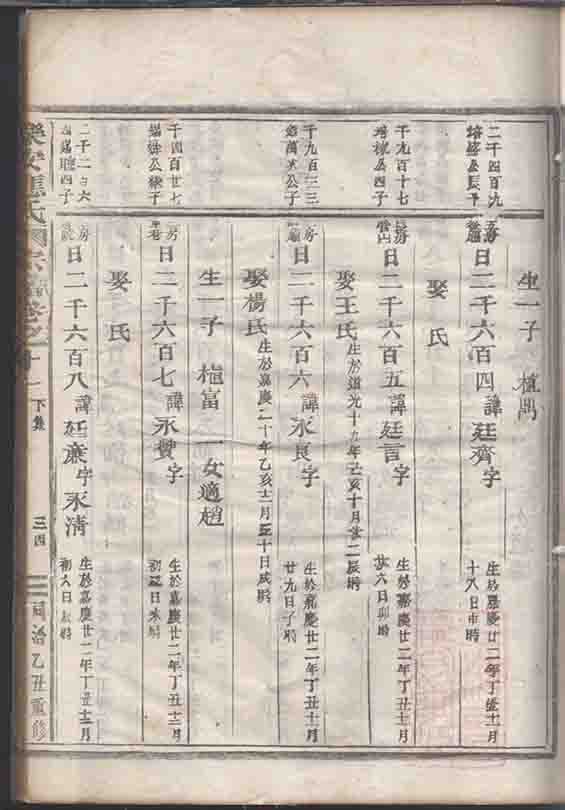 生一子
二千四百九
日二千六百四諱廷齊字
生於嘉慶廿二年丁丑十一月
十八日
娶 氏
千九百十七
公四子
日二千六百五諱廷言字
生於嘉慶廿二年丁丑十二月
廿六日卯時
娶王氏生於道光十九年己亥十月廿二辰時
千九百三三
公子
日二千六百六諱永良字
生於嘉慶廿二年丁丑十二月
廿九日子時
娶楊氏生於嘉慶二十年乙亥十二月三十日戌時
生一子 植富 一女適趙
千四百廿七
公 子
日二千六百七諱永贊字
生於嘉慶廿二年丁丑十二月
初 日未時
娶 氏
二千二百六
四子
日二千六百八諱廷廉字永清
生於嘉慶廿二年丁丑十二月
初六日 時
樂安 氏 宗 卷之十一
下集
三四
同治乙丑重修